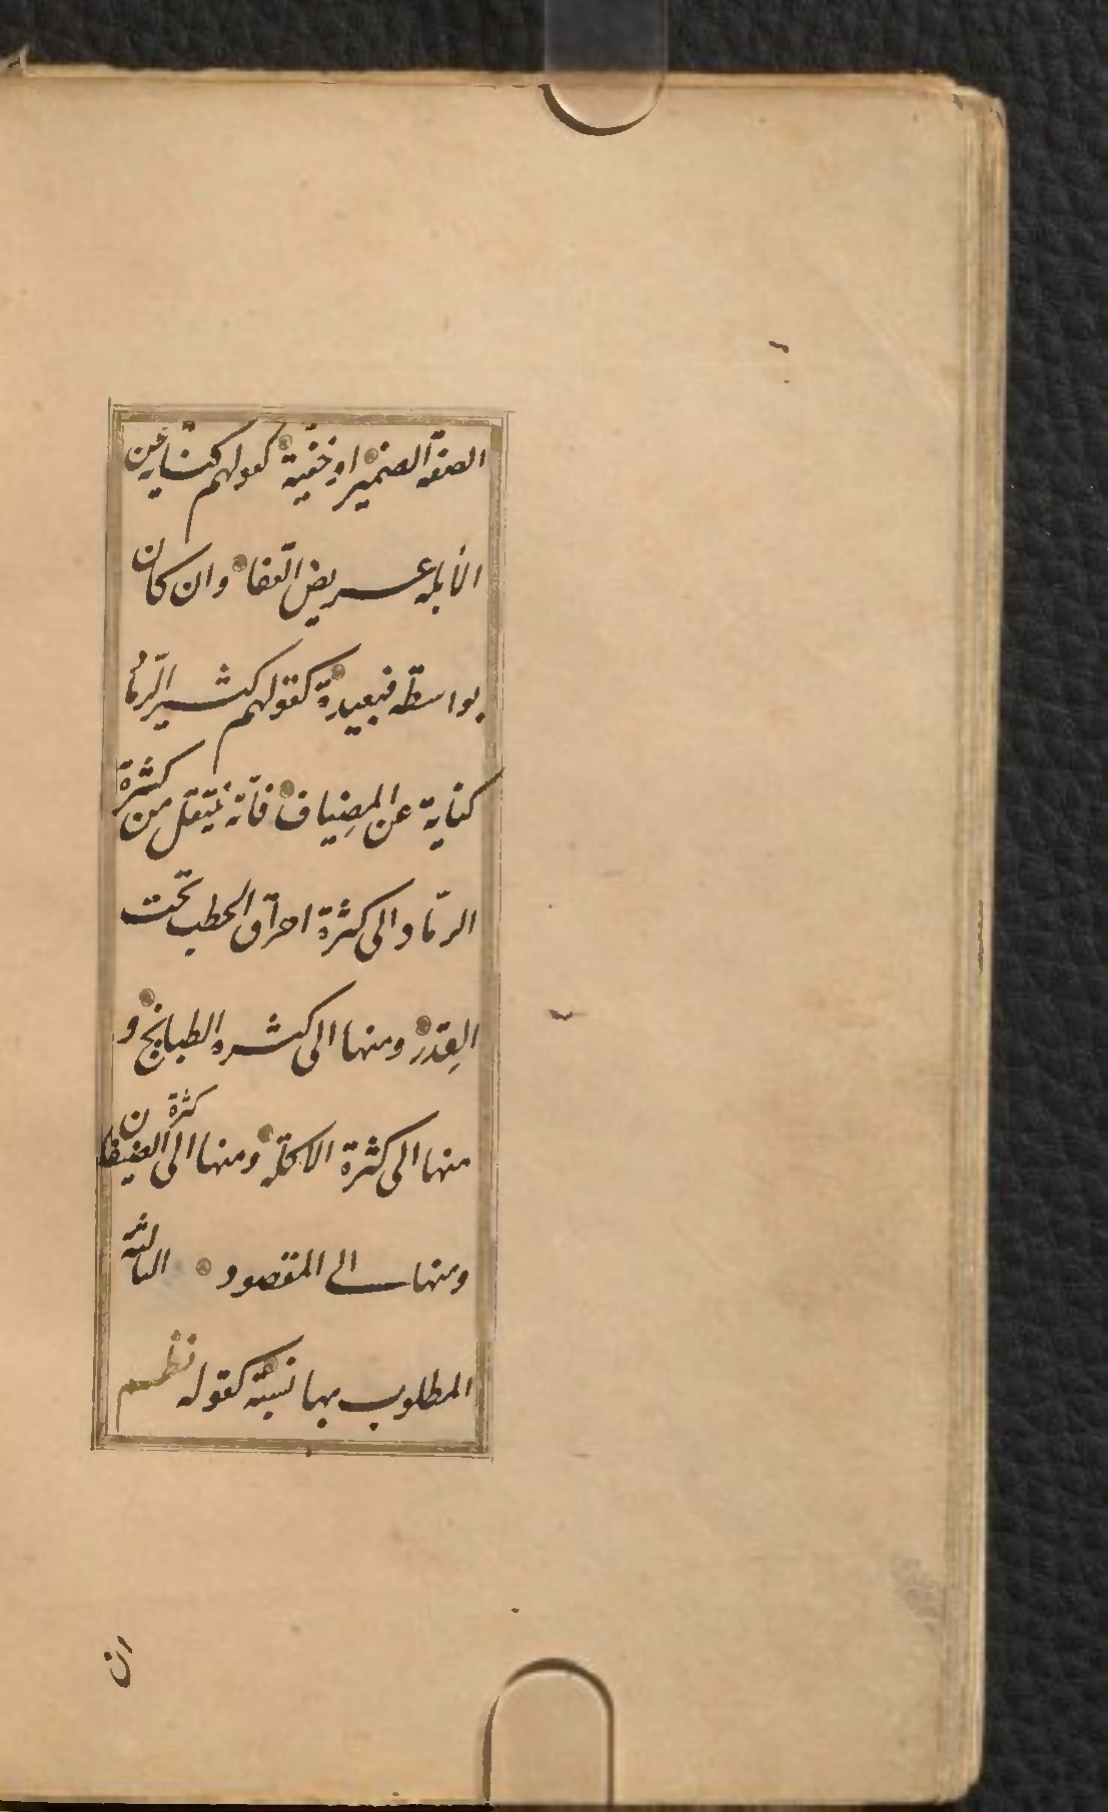 الصفة الضمير او خفية كقولهم كناية عن
الأبله عريض القفا وان كان
بواسطة فبعيدة كقولهم كثير الرماد
كناية عن المضياف فانه ينتقل من كثرة
الرماد الى كثرة احراق الحطب تحت
القِدر ومنها الى كثرة الطبايخ و
منها الى كثرة الاكلة ومنها الى كثرة الضيفان
ومنها الى المقصود الثالثة
المطلوب بها نسبة كقوله نظم
ان